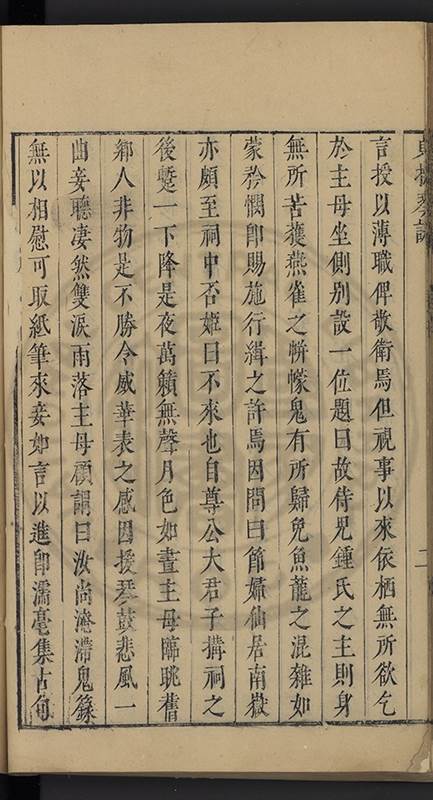 言授以薄職俾敬衛焉但視事以來依栖無所欲乞
於主母坐側別設一位題曰故侍兒鍾氏之主則身
無所苦獲燕雀之帡幪鬼有所歸免魚龍之混雜如
蒙矜憫卽賜施行緝之許焉因問曰節婦仙居南嶽
亦頗至祠中否姬曰不來也自尊公大君子搆祠之
後蹔一下降是夜萬籟無聲月色如晝主母臨眺舊
鄉人非物是不勝令威華表之感因援琴鼓悲風一
曲妾聽凄然雙淚雨落主母顧謂曰汝尚淹滯鬼籙
無以相慰可取紙筆來妾如言以進卽濡毫集古句